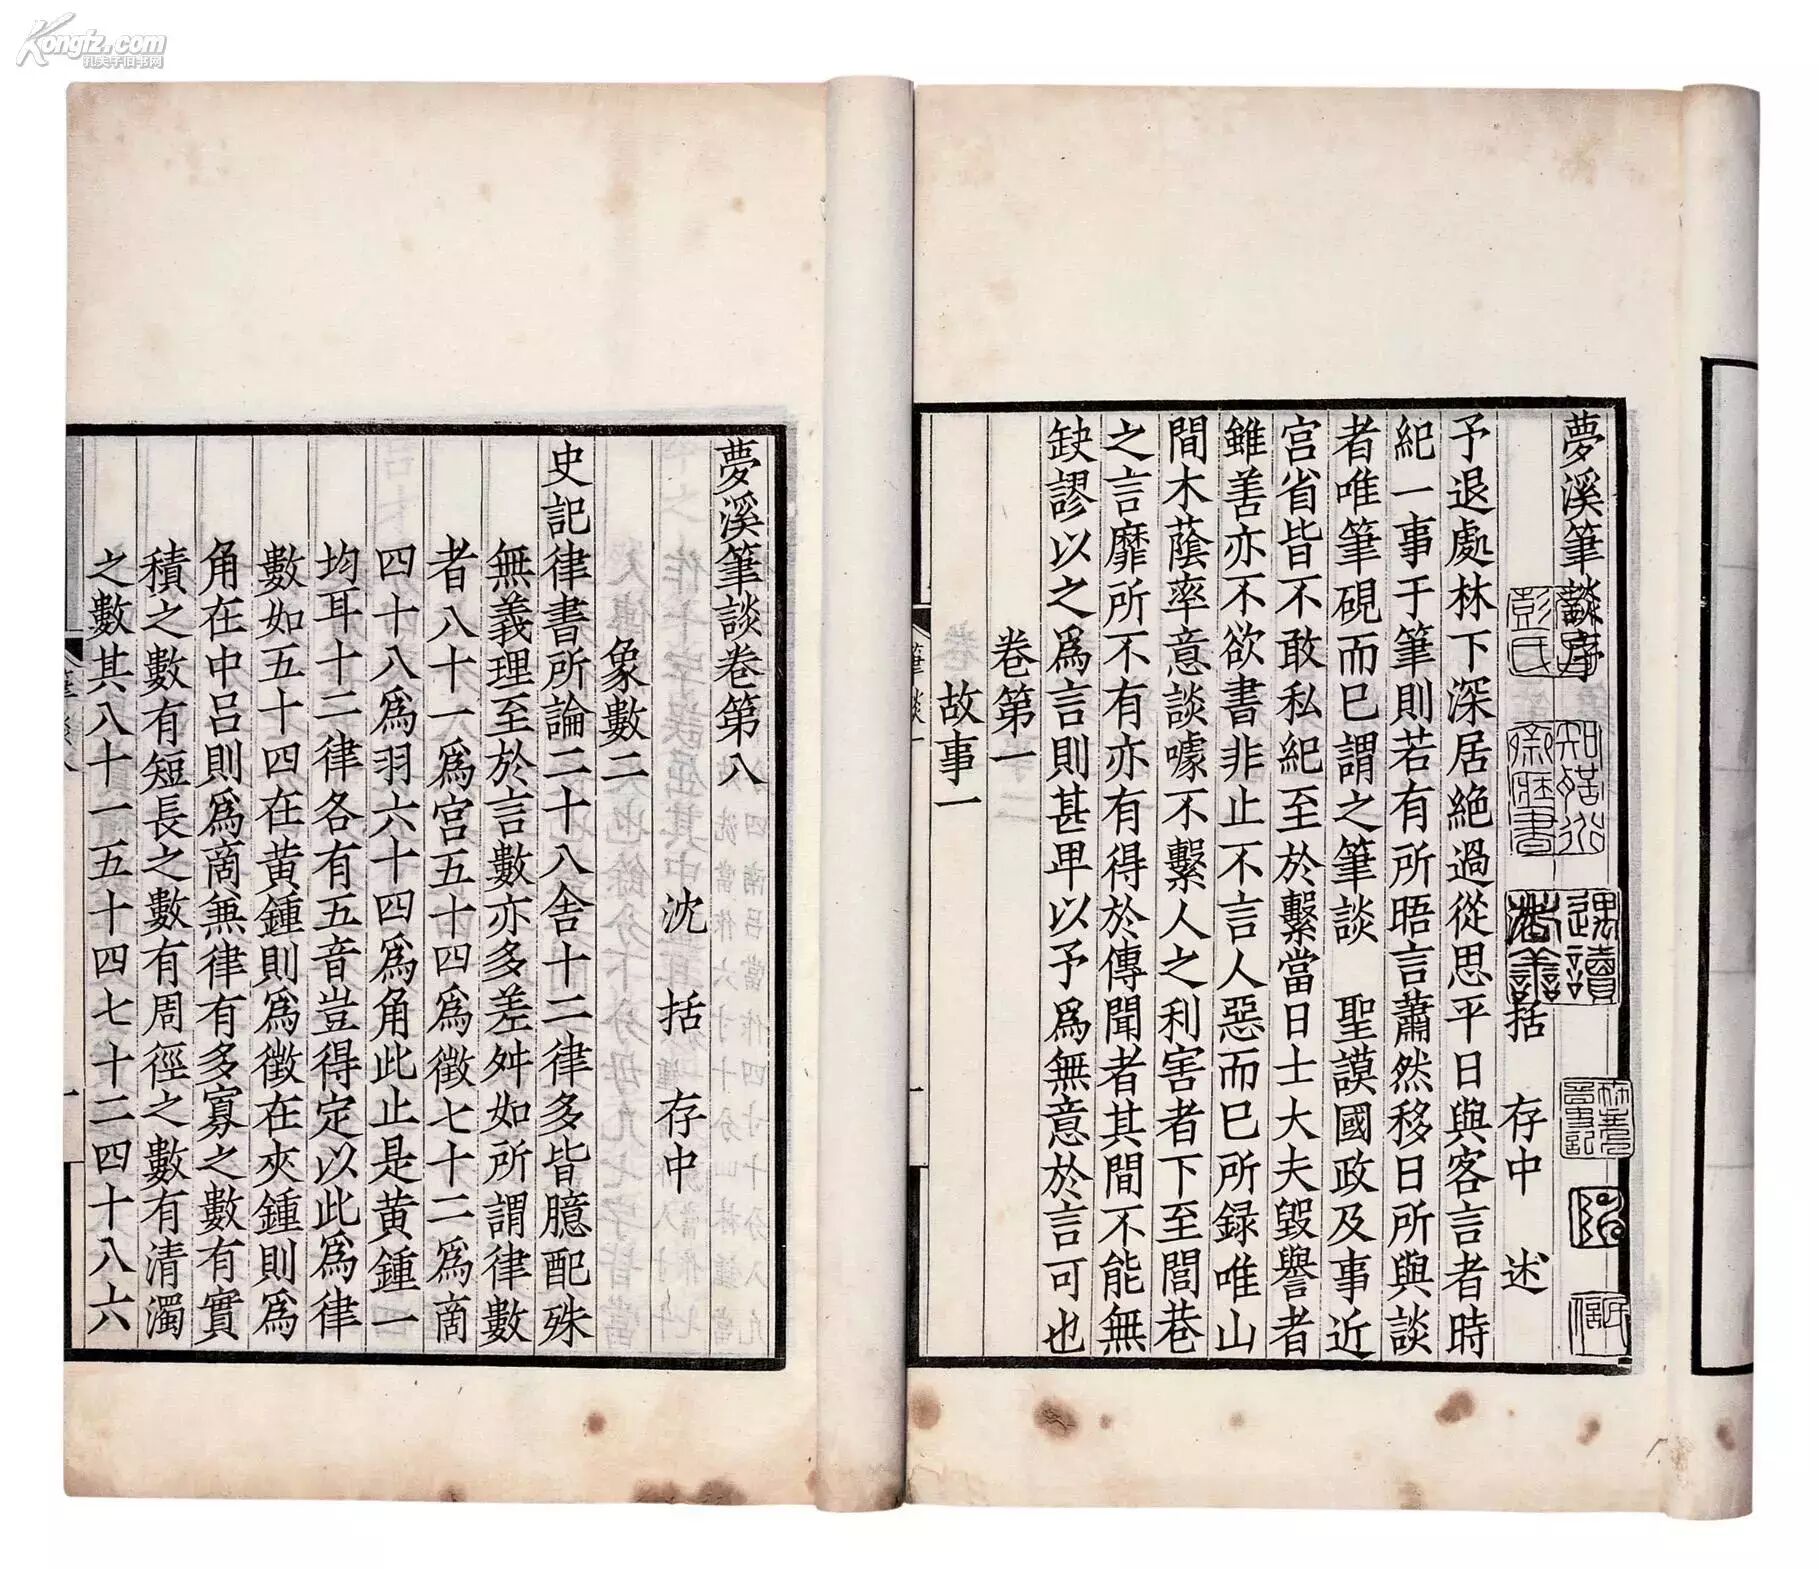 Kongfz.com
孔夫子旧书网
夢溪筆談序
沈括存中述
予退處林下深居絶過從思平日與客言者時
紀一事于筆則若有所晤言蕭然移日所與談
者唯筆硯而已謂之筆談 聖謨國政及事近
宮省皆不敢私紀至於繫當日士大夫毀譽者
雖善亦不欲書非止不言人惡而已所録唯山
間木蔭率意談噱不繫人之利害者下至閭巷
之言靡所不有亦有得於傳聞者其間不能無
缺謬以之爲言則甚卑以予爲無意於言可也
卷第一
故事一
筆談一
夢溪筆談卷第八
沈 括 存中
象數二
史記律書所論二十八舍十二律多皆臆配殊
無義理至於言數亦多差舛如所謂律數
者八十一爲宮五十四爲徵七十二爲商
四十八爲羽六十四爲角此止是黄鍾一
均耳十二律各有五音豈得定以此爲律
數如五十四在黄鍾則爲徵在夾鍾則爲
角在中呂則爲商無律有多寡之數有實
積之數有短長之數有周徑之數有清濁
之數其八十一五十四七十二四十八六
筆談八